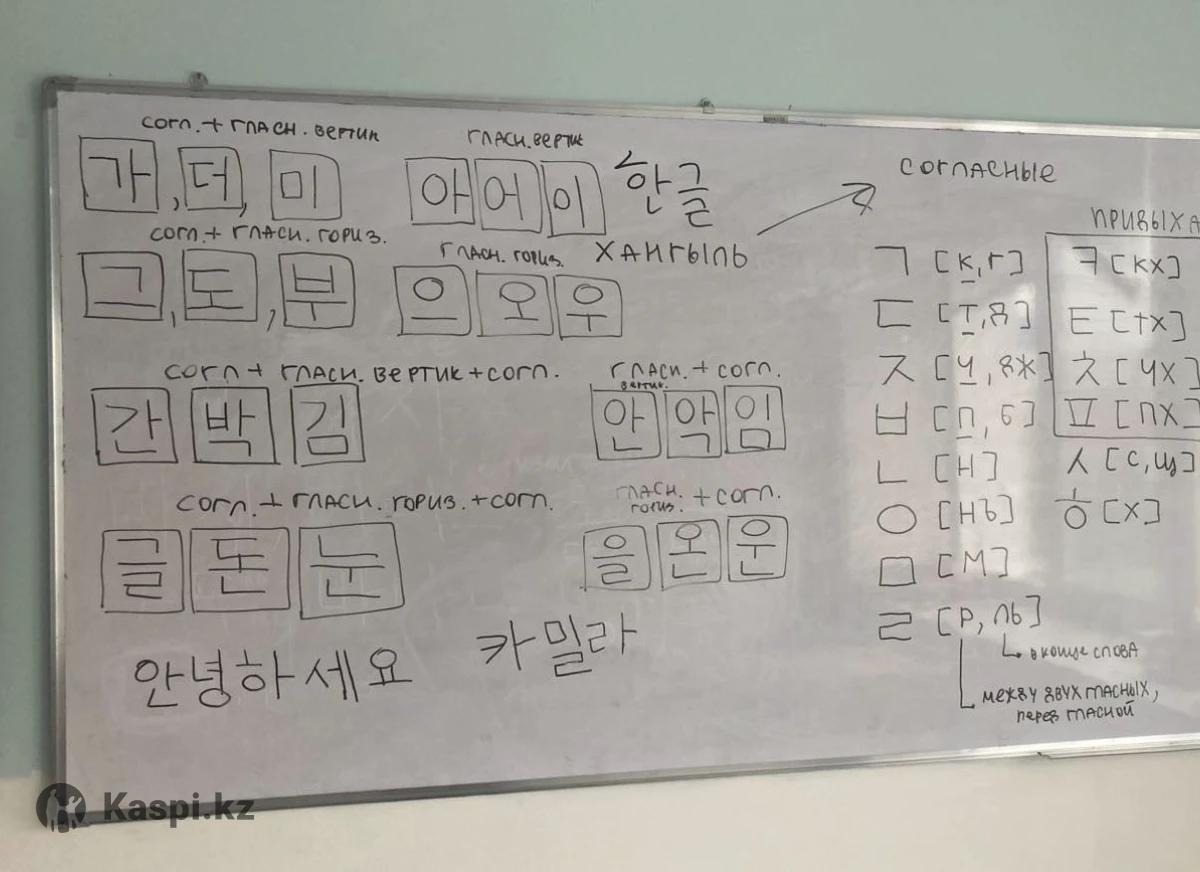 согл. + гласн. вертик
가, 더, 미
гласн. вертик
아 어 이
한글
хангыль
согл. + гласн. гориз.
그, 도, 부
гласн. гориз.
으 오 우
согл + гласн. вертик + согл.
간 박 김
гласн. + согл.
вертик.
안 악 임
согл. + гласн. гориз. + согл.
글 돈 눈
гласн. + согл.
гориз.
을 온 운
안녕하세요
카밀라
согласные
придыха
ㄱ [к, г]
ㅋ [кх]
ㄷ [т, д]
ㅌ [тх]
ㅈ [ч, дж]
ㅊ [чх]
ㅂ [п, б]
ㅍ [пх]
ㄴ [н]
ㅅ [с, щ]
ㅇ [нъ]
ㅎ [х]
ㅁ [м]
ㄹ [р, ль]
в конце слова
между двух гласных,
перед гласной
Kaspi.kz